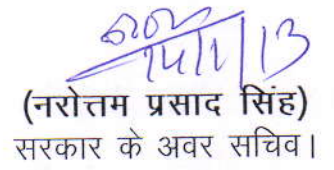 14/1/13
(नरोत्तम प्रसाद सिंह)
सरकार के अवर सचिव।